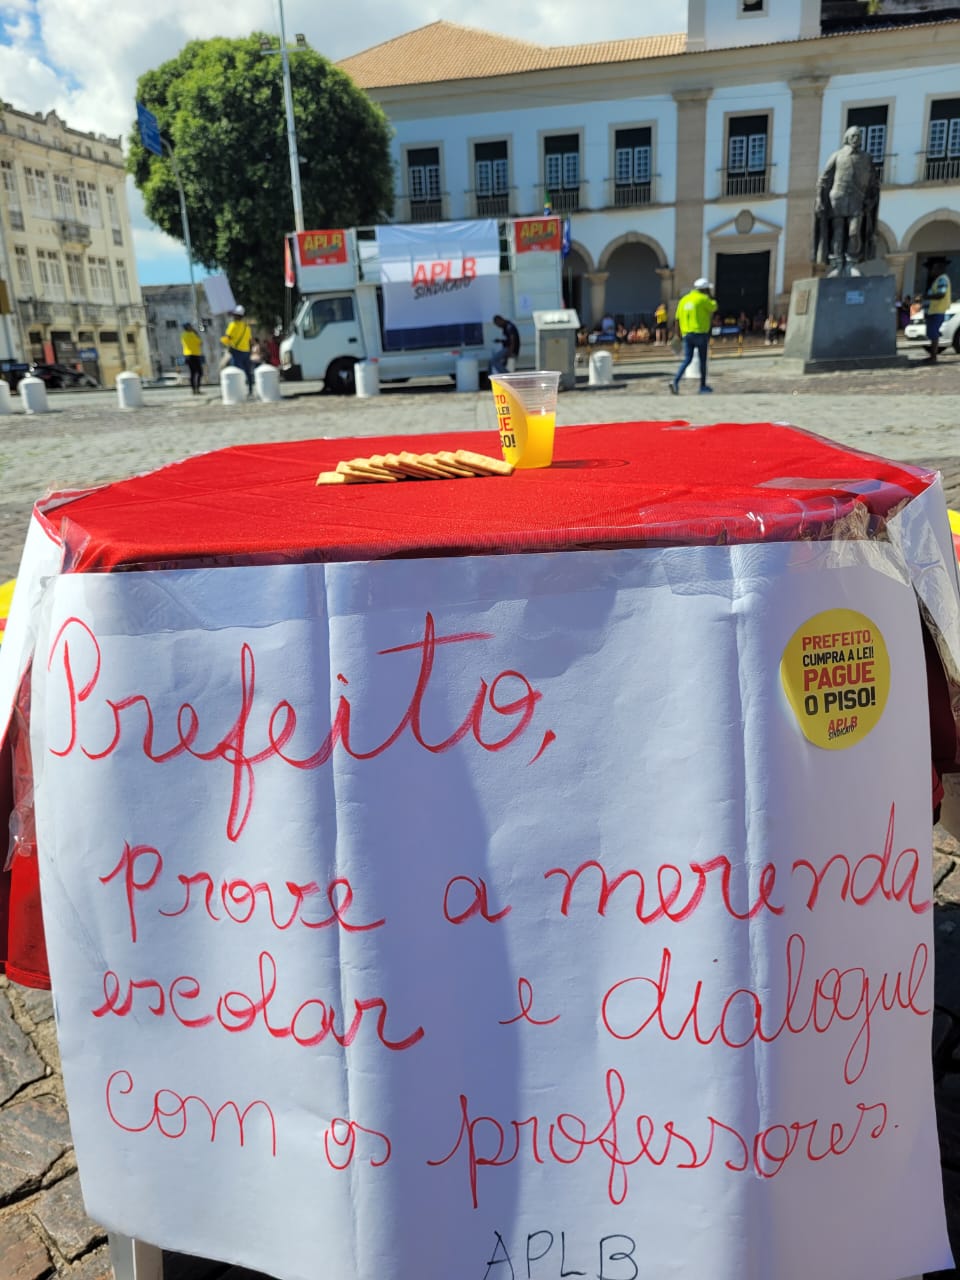 APLB
APLB
SINDICATO
APLB
PREFEITO,
CUMPRA A LEI!
PAGUE
O PISO!
APLB
SINDICATO
Prefeito,
prove a merenda
escolar e dialogue
com os professores.
APLB